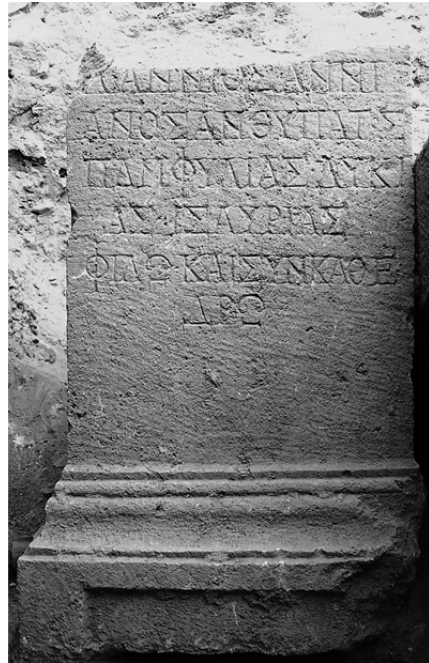 Λ ΑΝΝΙΟΣ ΑΝΝΙ
ΑΝΟΣ ΑΝΘΥΠΑΤΣ
ΠΑΜΦΥΛΙΑΣ ΛΥΚΙ
ΑΣ ΙΣΑΥΡΙΑΣ
ΦΙΛΩ ΚΑΙ ΣΥΝΚΑΘΕ
ΔΡΩ